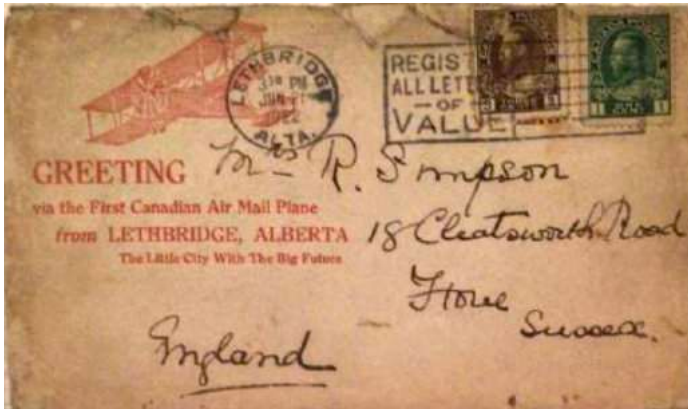 LETHBRIDGE
PM
JUN
1922
ALTA.
REGIST
ALL LETT
— OF —
VALUE
1 1
GREETING
via the First Canadian Air Mail Plane
from LETHBRIDGE, ALBERTA
The Little City With The Big Future
R. Simpson
18 Chatsworth Road
Hove
Sussex.
England